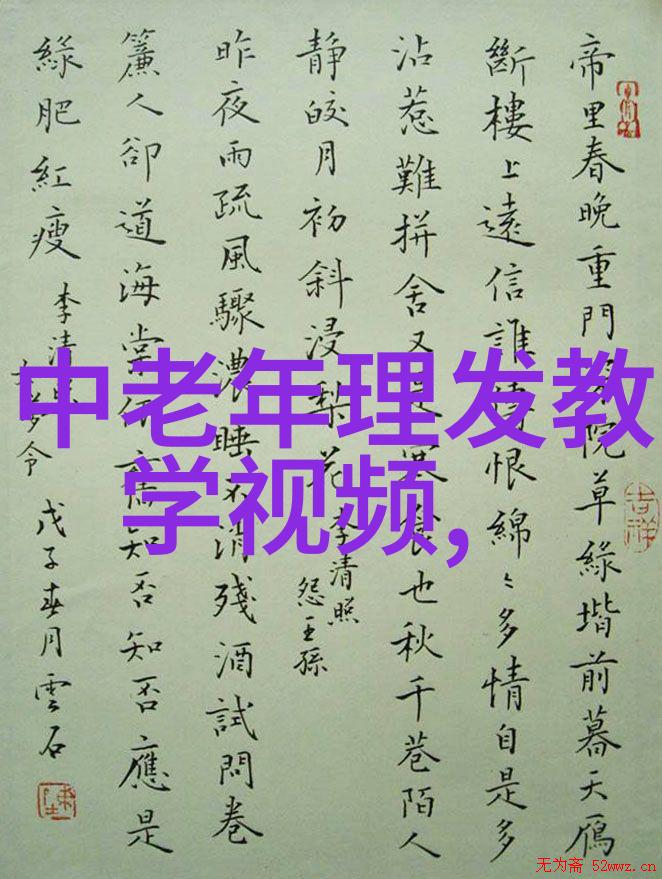 帝里春晚重門院草緑堦前暮天鴈
斷樓上遠信誰恨綿〻多情自是多
沾惹難拼舍又食也秋千巷陌人
靜皎月初斜浸梨花
李清照
怨王孫
昨夜雨疏風驟濃睡不消殘酒試問卷
簾人卻道海棠舊知否知否應是
緑肥紅瘦
李清
夢令
戊子春月雲石
吉祥
中老年理发教
学视频,
无为斋 52wwz.cn